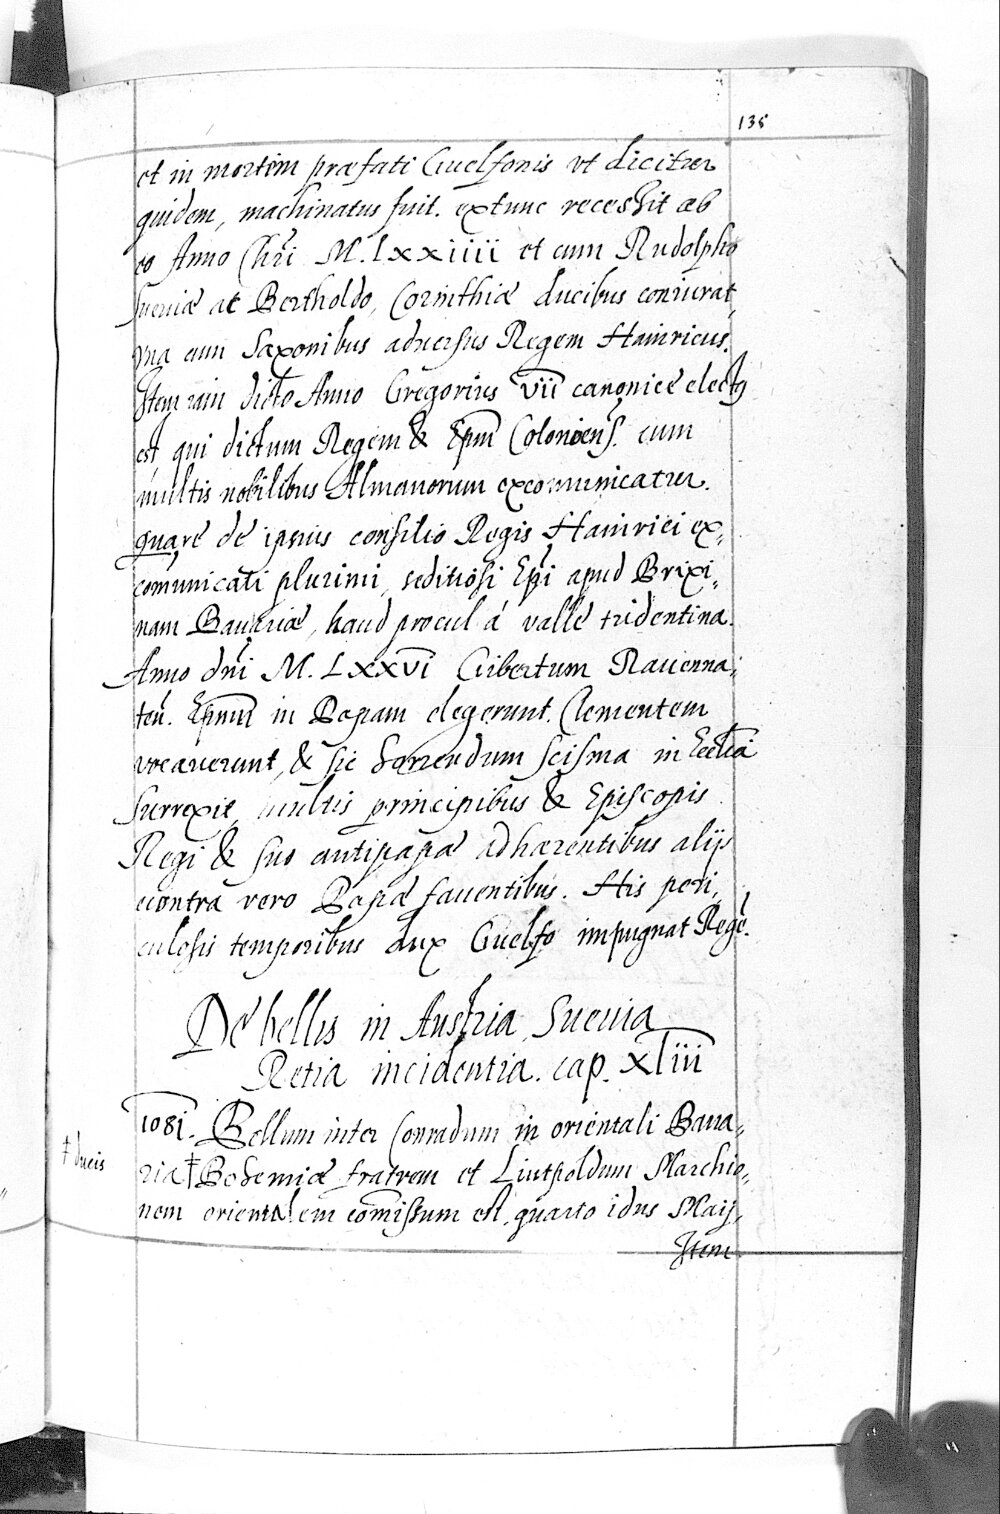 135
et in mortem præfati Guelfonis vt dicitur
quidem, machinatus fuit. extunc recessit ab
eo Anno Chri M. LXXIIII et cum Rudolpho
Sueviæ at Bertholdo, Corinthiæ ducibus coniurat,
vna cum Saxonibus adversus Regem Hainricus.
Item in dicto Anno Gregorius VII canonicè electus
est qui dictum Regem & Epm Coloniens. cum
multis nobilibus Almanorum excommunicatur.
quare de ipsius consilio Regis Hainrici ex-
comunicati plurimi, seditiosi Epi apud Brixi-
nam Bauariæ, haud procul á valle tridentina.
Anno dni M. LXXVI Gibertum Rauenna-
ten. Epnm in Papam elegerunt. Clementem
vocauerunt, & sic horrendum scisma in Ecclia
surrexit, multis principibus & Episcopis
Regi & suo antipapæ adhærentibus alijs
econtra vero Papæ fauentibus. His peri-
culosis temporibus dux Guelfo impugnat Regē.
De bellis in Austria, Sueuia
Retia incidentia. cap. XLIII
1081. Bellum inter Conradum in orientali Baua-
† ducis
ria † Bohemiæ fratrem et Liutpoldum Marchio-
nem orientalem comissum est, quarto idus Maij,
Item